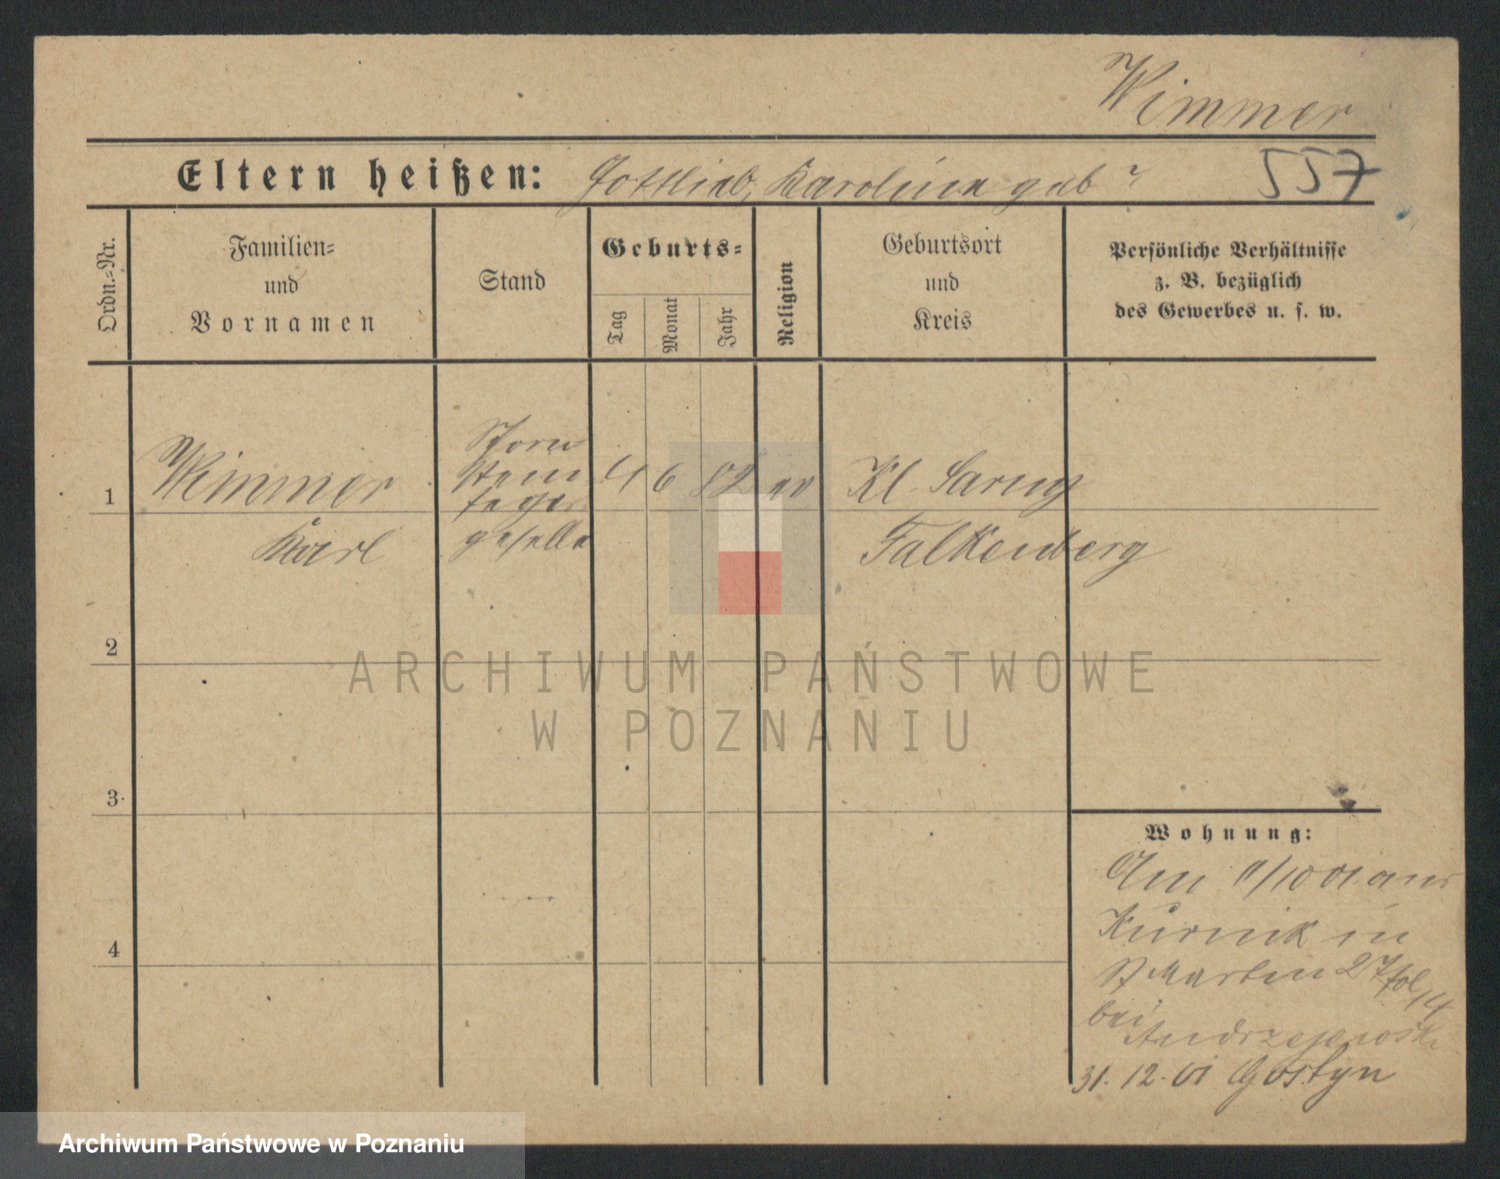 Wimmer
Eltern heißen: Gottlieb, Karoline geb ?
557
Ordn.=Nr.
Familien=
und
Vornamen
Stand
Geburts=
Tag
Monat
Jahr
Religion
Geburtsort
und
Kreis
Persönliche Verhältnisse
z. B. bezüglich
des Gewerbes u. s. w.
1
Wimmer
Karl
Schorn
stein
feger
geselle
4 6 82 ev
Kl. Sarne
Falkenberg
2
3
4
Wohnung:
Am 11/10 01 aus
Kurnik in
St Martin 27 fol 14
bei
Andrzejewski
31. 12. 01 Gostyn
ARCHIWUM PAŃSTWOWE
W POZNANIU
Archiwum Państwowe w Poznaniu